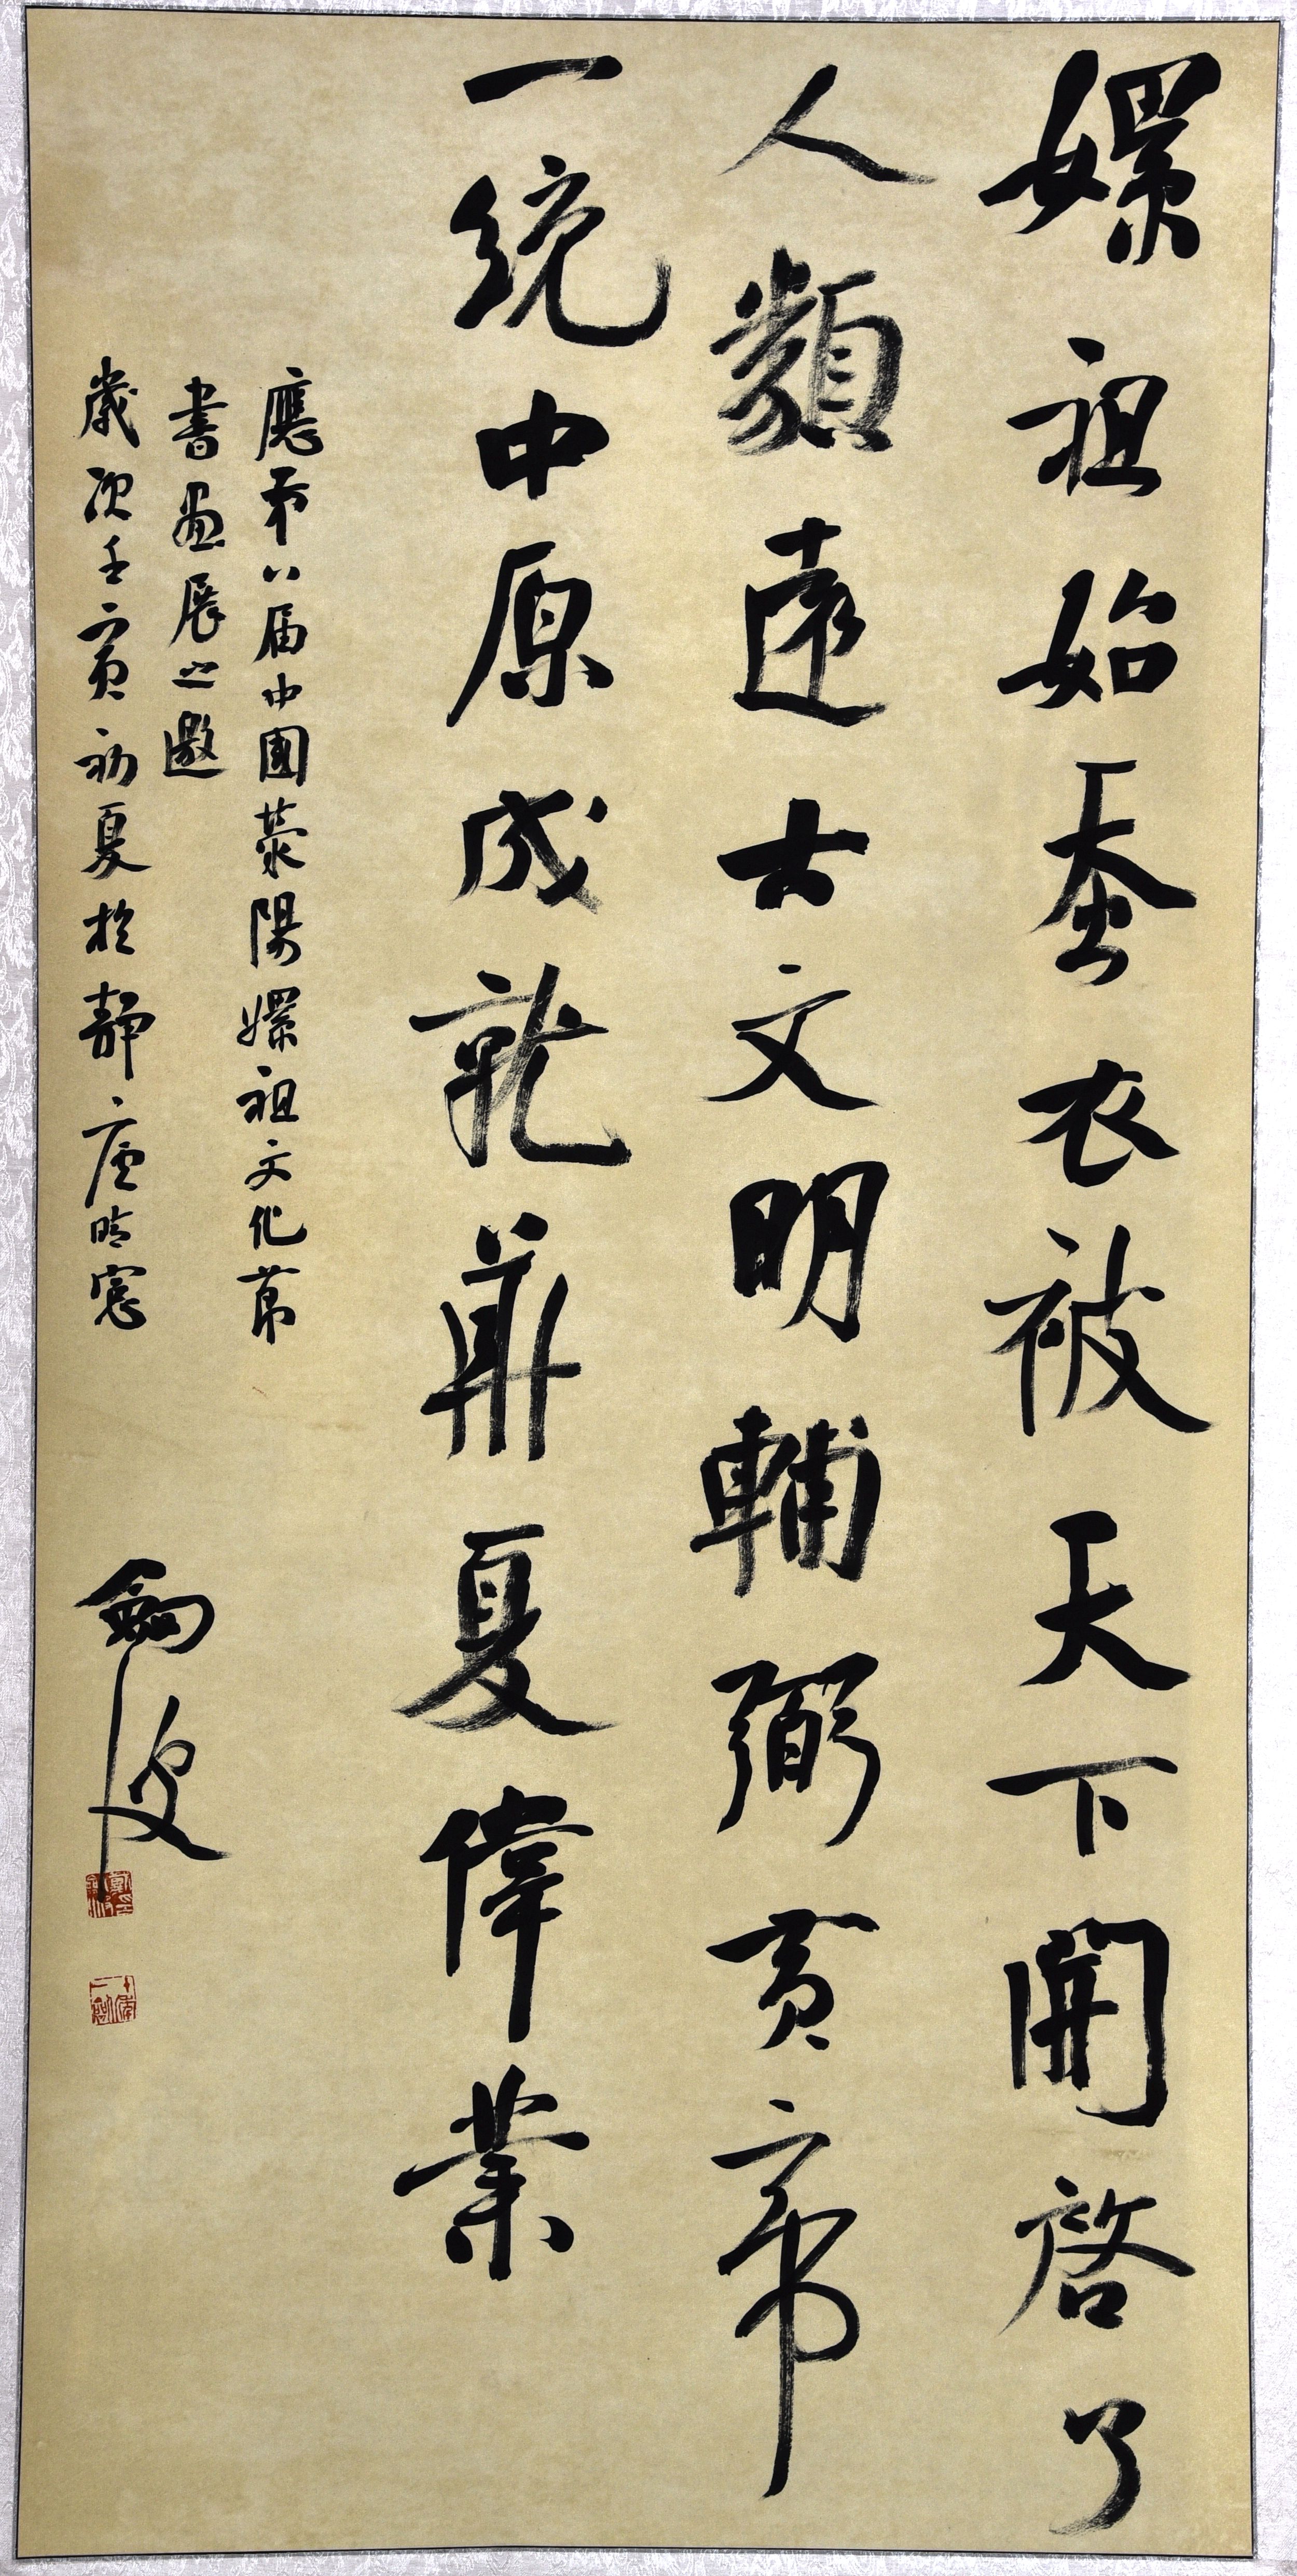 嫘祖始蚕衣被天下開啓了
人類遠古文明輔弼黄帝
一统中原成就華夏偉業
應第八届中國荥陽嫘祖文化節
書画展之邀
歲次壬寅初夏於静庐晴窗
劍波